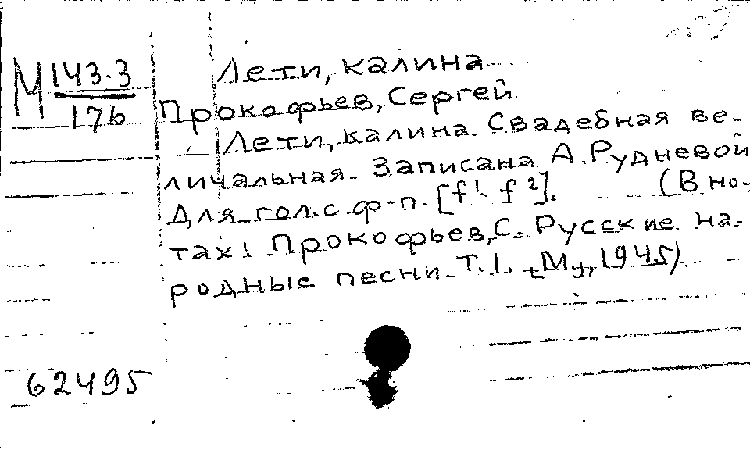 Лети, калина
М 143-3
176
Прокофьев, Сергей
Лети, калина. Свадебная ве-
личальная. Записана А. Рудневой
Для гол. с ф-п. [f¹- f²]. (В но-
тах: Прокофьев, С. Русские на-
родные песни. Т. I. М., 1945)
62495